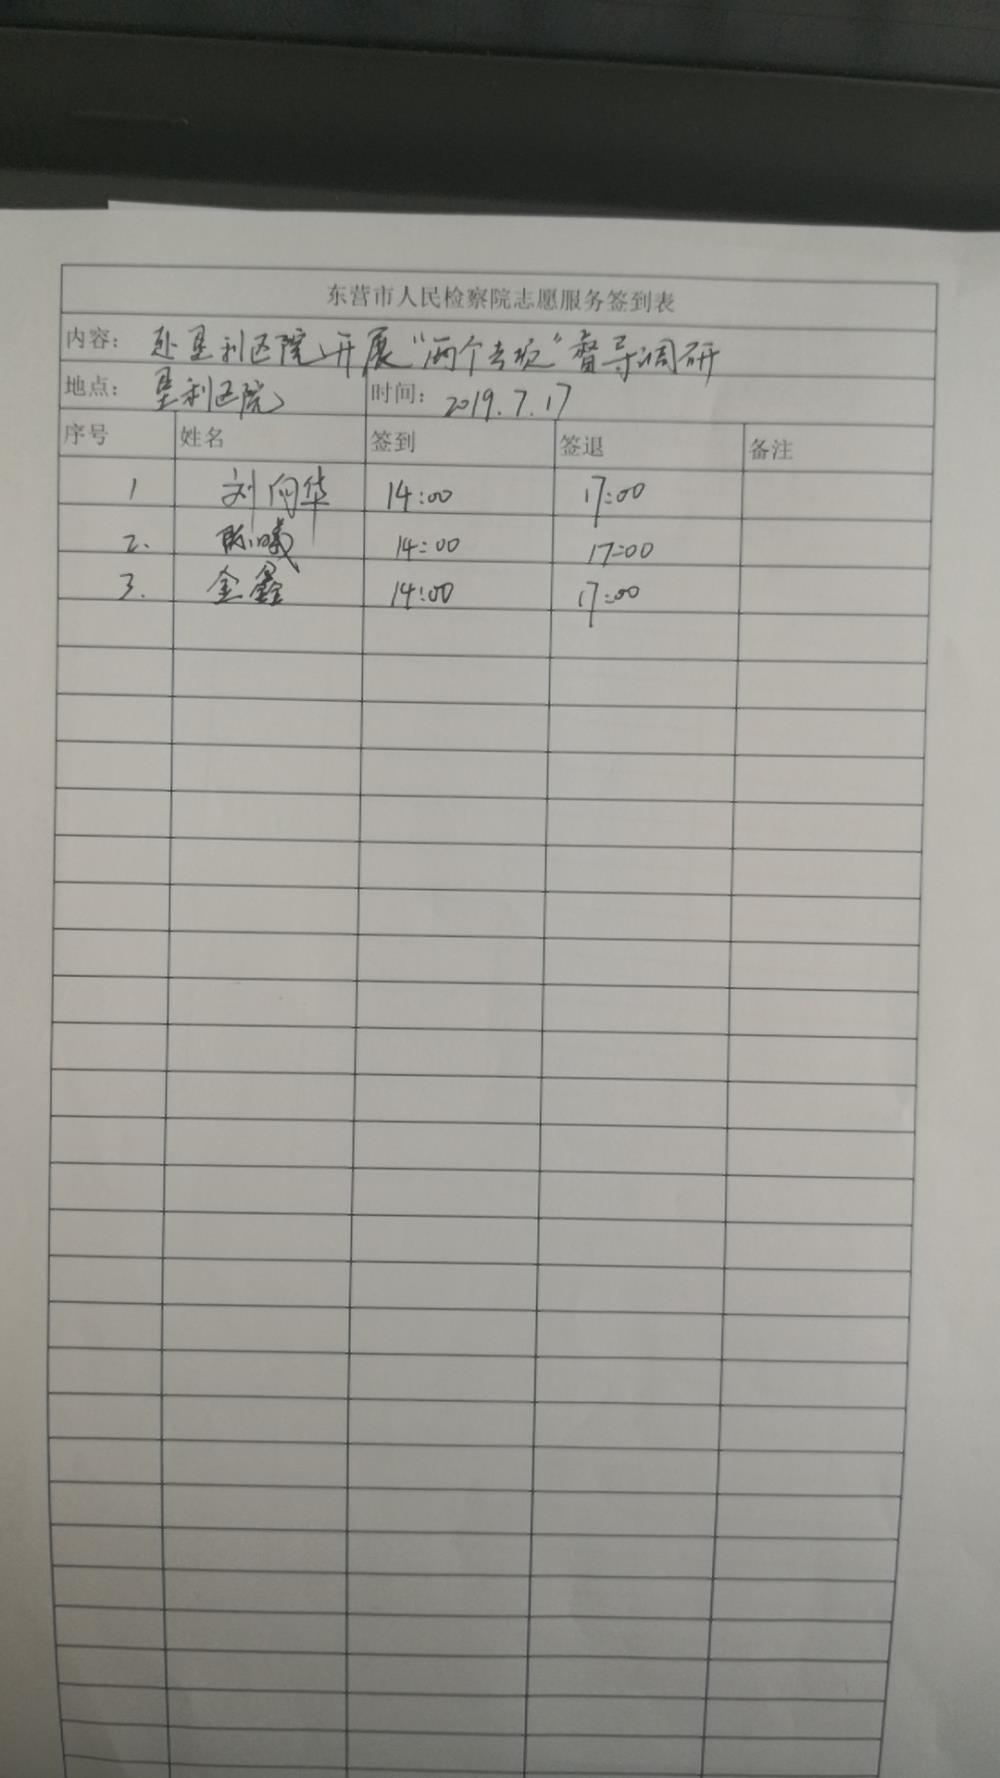 东营市人民检察院志愿服务签到表
内容： 赴垦利区院开展“两个专项”督导调研
地点： 垦利区院 时间： 2019.7.17
序号 姓名 签到 签退 备注
1 刘向华 14:00 17:00
2. 陈曦 14:00 17:00
3. 金鑫 14:00 17:00